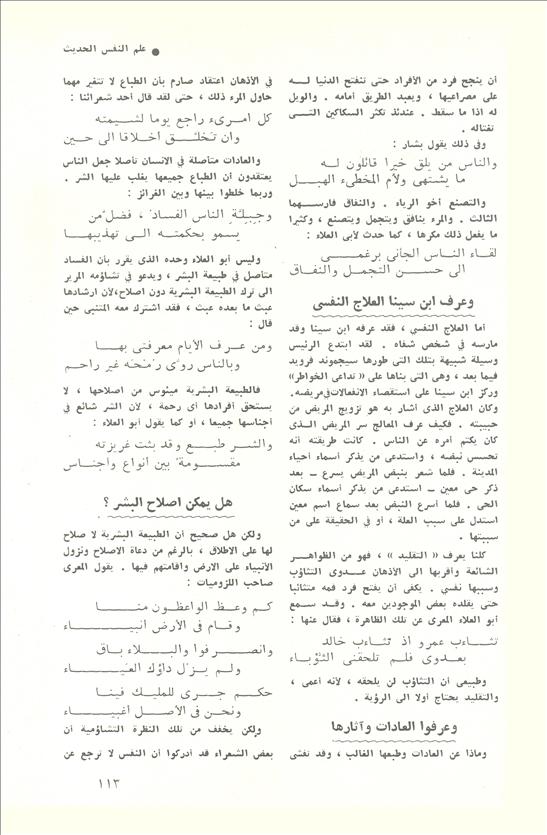 علم النفس الحديث
أن ينجح فرد من الأفراد حتى تنفتح الدنيا لـــه
على مصراعيها ، ويعبد الطريق أمامه . والويل
له اذا ما سقط . عندئذ تكثر السكاكين التـــى
تغتاله .
وفى ذلك يقول بشار :
والناس من يلق خيرا قائلون لــه
ما يشتهى ولأم المخطىء الهبـــل
والتصنع أخو الرياء . والنفاق فارســـهما
الثالث . والمرء ينافق ويتجمل ويتصنع ، وكثيرا
ما يفعل ذلك مكرها ، كما حدث لأبى العلاء :
لقاء النــاس الجانى برغمــــى
الى حســـن التجمـل والنفـاق
وعرف ابن سينا العلاج النفسى
أما العلاج النفسى ، فقد عرفه ابن سينا وقد
مارسه في شخص شفاه . لقد ابتدع الرئيس
وسيلة شبيهة بتلك التى طورها سيجموند فرويد
فيما بعد ، وهى التى بناها على « تداعى الخواطر»
وركز ابن سينا على استقصاء الانفعالات فى مريضه.
وكان العلاج الذى أشار به هو تزويج المريض من
حبيبته . فكيف عرف المعالج سر المريض الــذى
كان يكتم أمره عن الناس . كانت طريقته أنه
تحسس نبضه ، واستدعى من يذكر أسماء أحياء
المدينة . فلما شعر بنبض المريض يسرع ــ بعد
ذكر حى معين ــ استدعى من يذكر أسماء سكان
الحى . فلما أسرع النبض بعد سماع اسم معين
استدل على سبب العلة ، أو فى الحقيقة على من
سببتها .
كلنا يعرف « التقليد » ، فهو من الظواهـــر
الشائعة وأقربها الى الأذهان عـــدوى التثاؤب
وسببها نفسى . يكفى أن يفتح فرد فمه متثائبا
حتى يقلده بعض الموجودين معه . وقــد ســمع
أبو العلاء المعرى عن تلك الظاهرة ، فقال عنها :
تثــاءب عمرو اذ تثـاءب خالد
بعـدوى فلـم تلحقنى الثؤبـاء
وطبيعى أن التثاؤب لن يلحقه ، لأنه أعمى ،
والتقليد يحتاج أولا الى الرؤية .
وعرفوا العادات وآثارها
وماذا عن العادات وطبعها الغالب ، وقد تفشى
فى الأذهان اعتقاد صارم بأن الطباع لا تتغير مهما
حاول المرء ذلك ، حتى لقد قال أحد شعرائنا :
كل امرىء راجع يوما لشـيمته
وان تخلـق أخلاقا الى حـــين
والعادات متأصلة فى الانسان تأصلا جعل الناس
يعتقدون أن الطباع جميعها يغلب عليها الشر .
وربما خلطوا بينها وبين الغرائز :
وجبلة الناس الفساد ، فضل من
يسمو بحكمته الـى تهذيبهــا
وليس أبو العلاء وحده الذى يقرر بأن الفساد
متأصل فى طبيعة البشر ، ويدعو فى تشاؤمه المرير
الى ترك الطبيعة البشرية دون اصلاح،لأن ارشادها
عبث ما بعده عبث ، فقد اشترك معه المتنبى حين
قال :
ومن عــرف الأيام معرفتى بهــا
وبالناس روى رمحه غير راحـم
فالطبيعة البشرية ميئوس من اصلاحها ، لا
يستحق أفرادها أى رحمة ، لأن الشر شائع فى
أجناسها جميعا ، أو كما يقول أبو العلاء :
والشــر طبــع وقد بثت غريزته
مقســـومة بين أنواع وأجنـاس
هل يمكن اصلاح البشر ؟
ولكن هل صحيح أن الطبيعة البشرية لا صلاح
لها على الاطلاق ، بالرغم من دعاة الاصلاح ونزول
الأنبياء على الارض واقامتهم فيها . يقول المعرى
صاحب اللزوميات :
كـم وعـظ الواعظـون منــــا
وقـام فى الأرض أنبيـــاء
وانصــرفوا والبـــلاء بـاق
ولـم يـزل داؤك العيـــاء
حكـم جـرى للمليـك فينـا
ونحـن فى الأصــل أغبيـاء
ولكن يخفف من تلك النظرة التشاؤمية أن
بعض الشعراء قد أدركوا أن النفس لا ترجع عن
١١٣